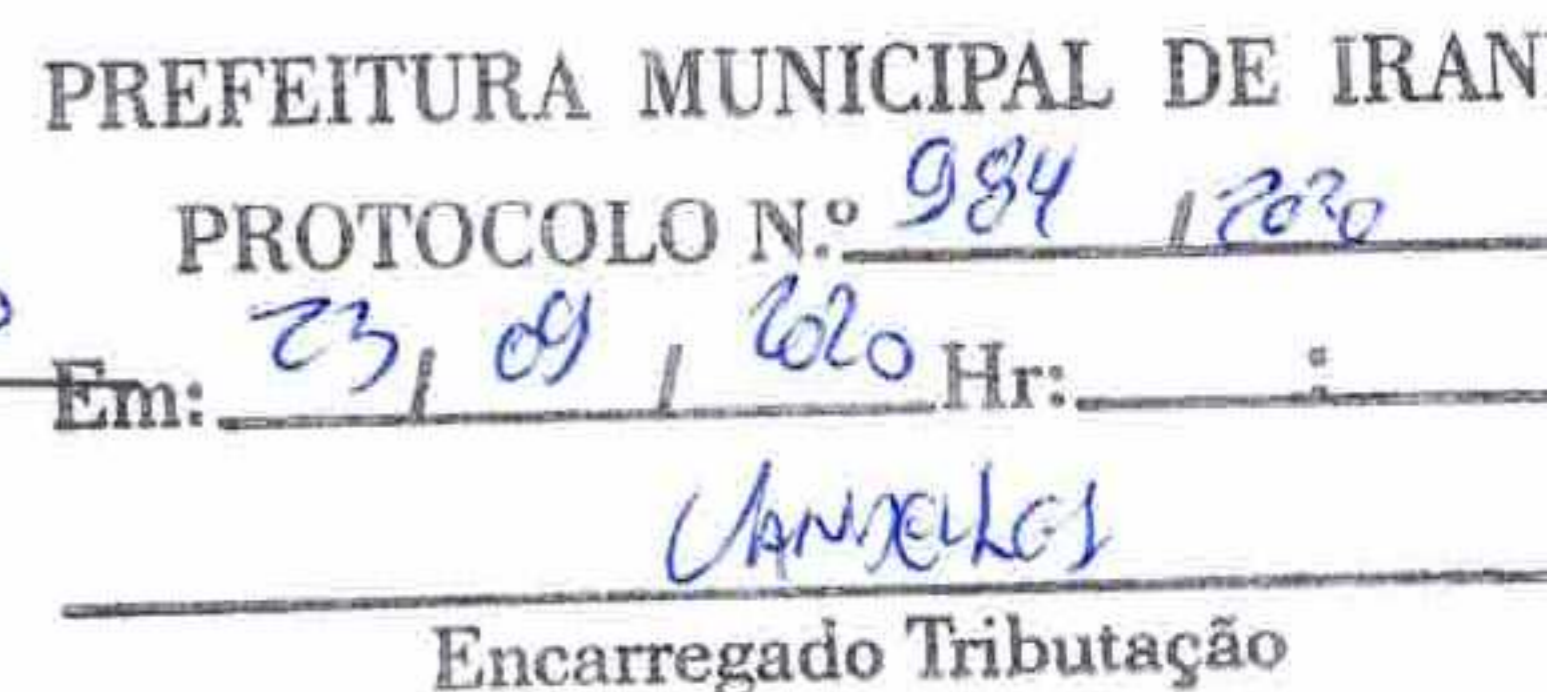 PREFEITURA MUNICIPAL DE IRANI
PROTOCOLO N.º 984 / 2020
Em: 23 / 09 / 2020 Hr: :
Encarregado Tributação